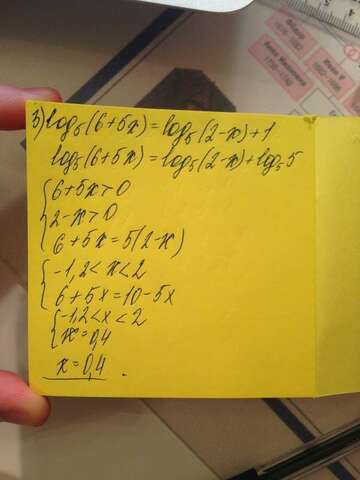 3) log₅(6+5x)=log₅(2-x)+1
log₅(6+5x)=log₅(2-x)+log₅5
{6+5x>0
2-x>0
6+5x=5(2-x)
{-1,2<x<2
6+5x=10-5x
{-1,2<x<2
x=0,4
x=0,4.